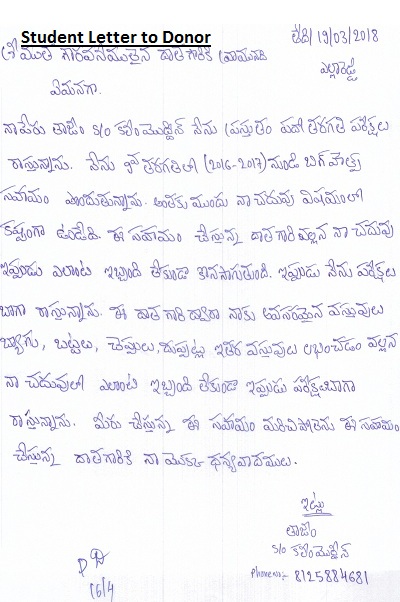 Student Letter to Donor
తేది/ 19/03/2018
శ్రీ మతి గౌరవనీయులైన దాత గారికి
ఎల్లారెడ్డి
ఏమనగా.
నా పేరు తాజీం S/o కలీం మొద్దీన్ నేను ప్రస్తుతం పదో తరగతి పరీక్షలు
రాస్తున్నాను. నేను 9వ తరగతిలో (2016-2017) నుండి బిగ్ హెల్ప్
సహాయం పొందుతున్నాను. అంతకు ముందు నా చదువు విషయంలో
కష్టంగా ఉండేది. ఈ సహాయం చేస్తున్న దాత గారి వల్లన నా చదువు
ఇప్పుడు ఎలాంటి ఇబ్బంది లేకుండా కొనసాగుతుంది. ఇప్పుడు నేను పరీక్షలు
బాగా రాస్తున్నాను. ఈ దాత గారి ద్వారా నాకు అవసరమైన వస్తువులు
బ్యాగు, బట్టలు, చెప్పులు, దుప్పట్లు ఇతర వస్తువులు లభించడం వల్లన
నా చదువులో ఎలాంటి ఇబ్బంది లేకుండా ఇప్పుడు పరీక్షలు బాగా
రాస్తున్నాను. మీరు చేస్తున్న ఈ సహాయం మరిచిపోలేను ఈ సహాయం
చేస్తున్న దాత గారికి నా యొక్క ధన్యవాదములు.
ఇట్లు
తాజీం
S/o కలీం మొద్దీన్
Phone no:- 8125884681
16/4